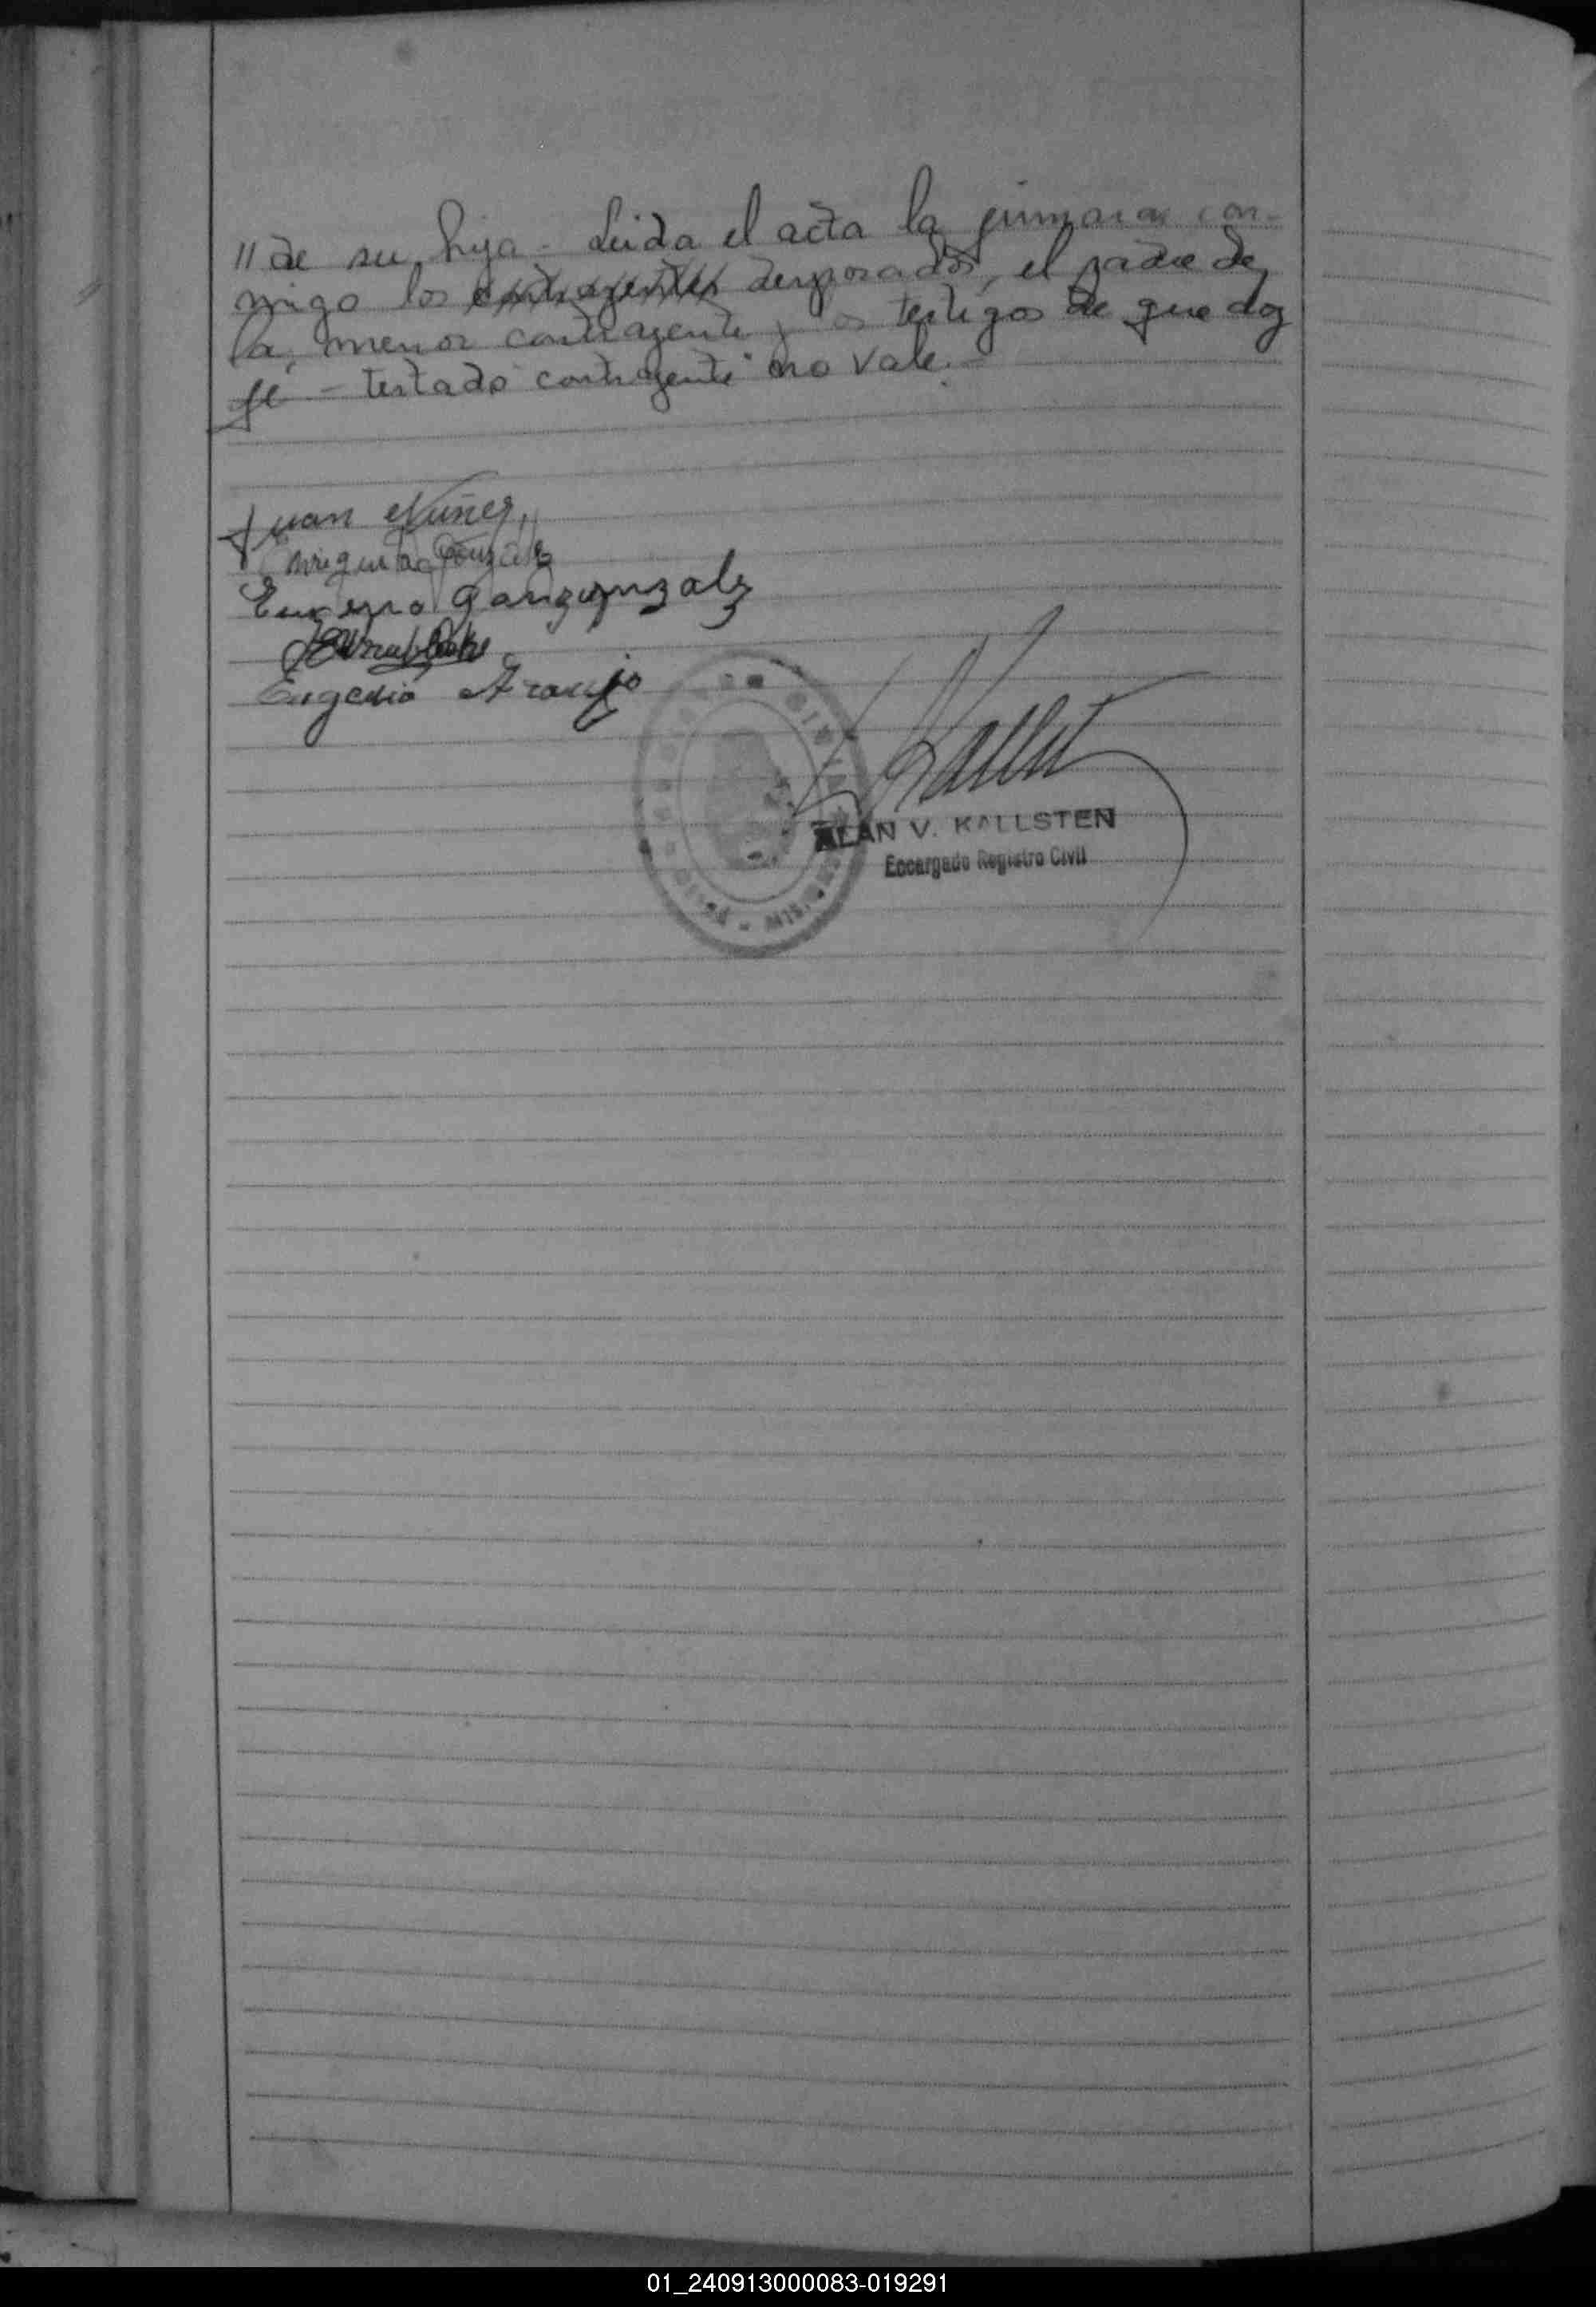 // de su hija - Leida el acta la firmaron con-
migo los contrayentes desposados, el padre de
la menor contrayente y los testigos de que doy
fé - testado "contrayente" no vale.-
Juan Nuñez
Enriqueta Gonzalez
Eugenio Araujo
ALAN V. KALLSTEN
Encargado Registro Civil
01_240913000083-019291